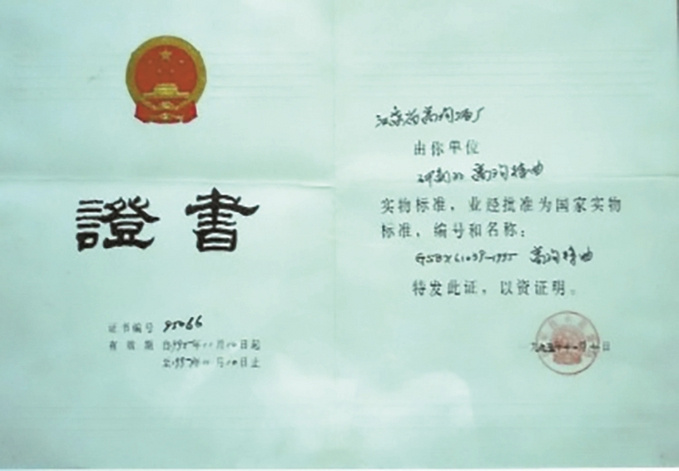 證書
证书编号 95066
有效期 自1995年11月10日起
至1997年11月10日止
江苏省高沟酒厂
由你单位
研制的 高沟特曲
实物标准,业经批准为国家实物
标准,编号和名称:
GSBX61039-1995 高沟特曲
特发此证,以资证明。
一九九五年十一月十日